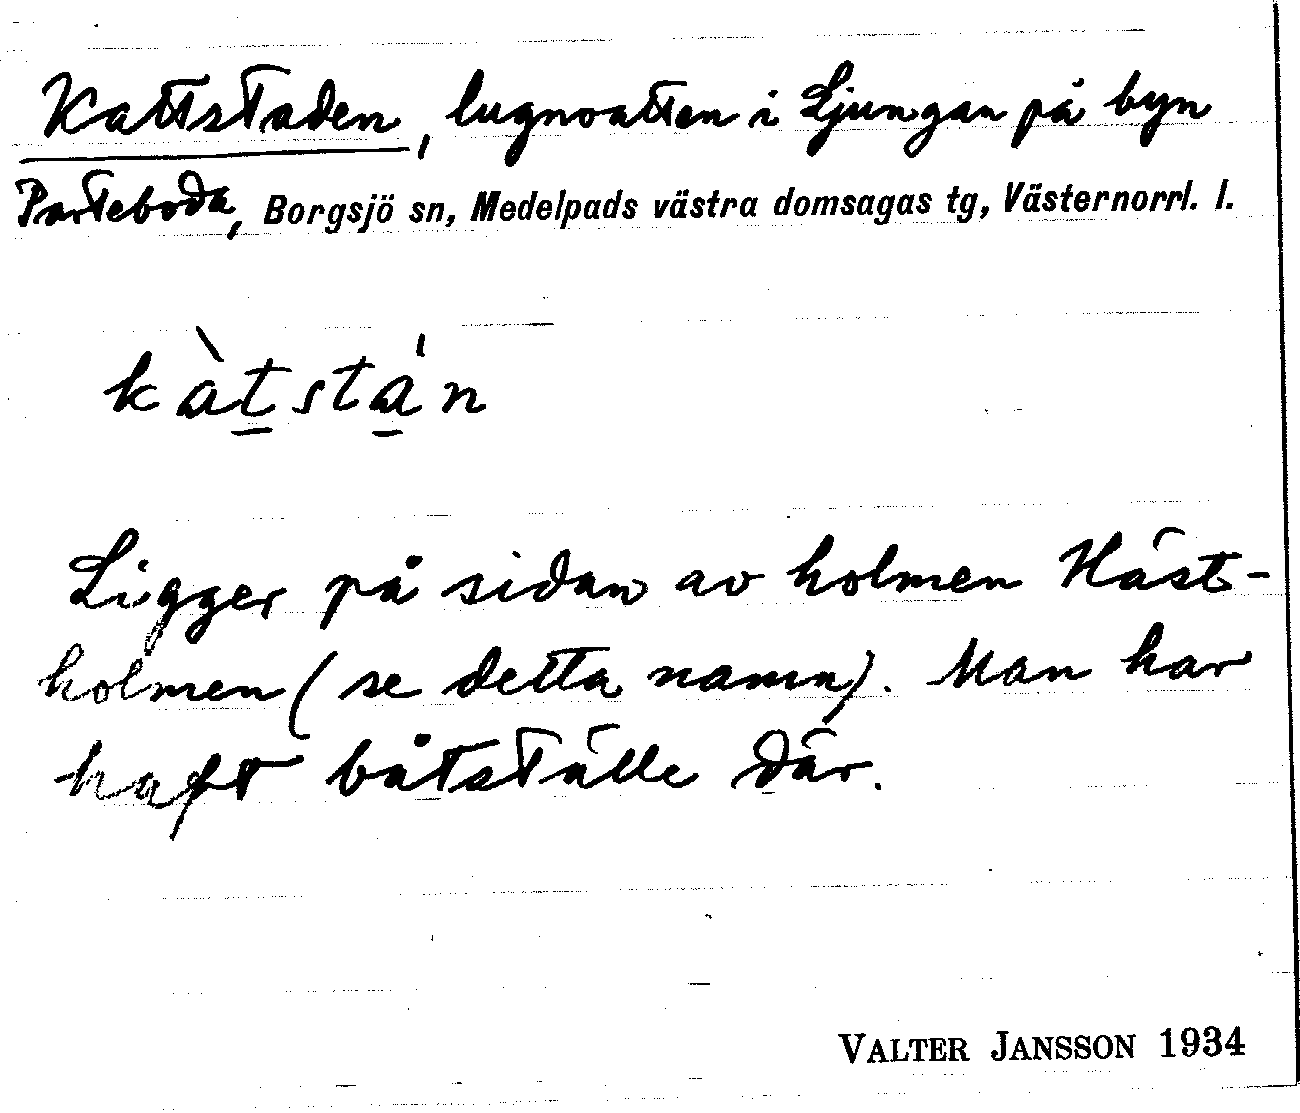 Kattstaden, lugnvatten i Ljungan på byn
Parteboda, Borgsjö sn, Medelpads västra domsagas tg, Västernorrl. l.
kàt̲sta̲'n
Ligger på sidan av holmen Häst-
holmen (se detta namn). Man har
haft båtställe där.
VALTER JANSSON 1934